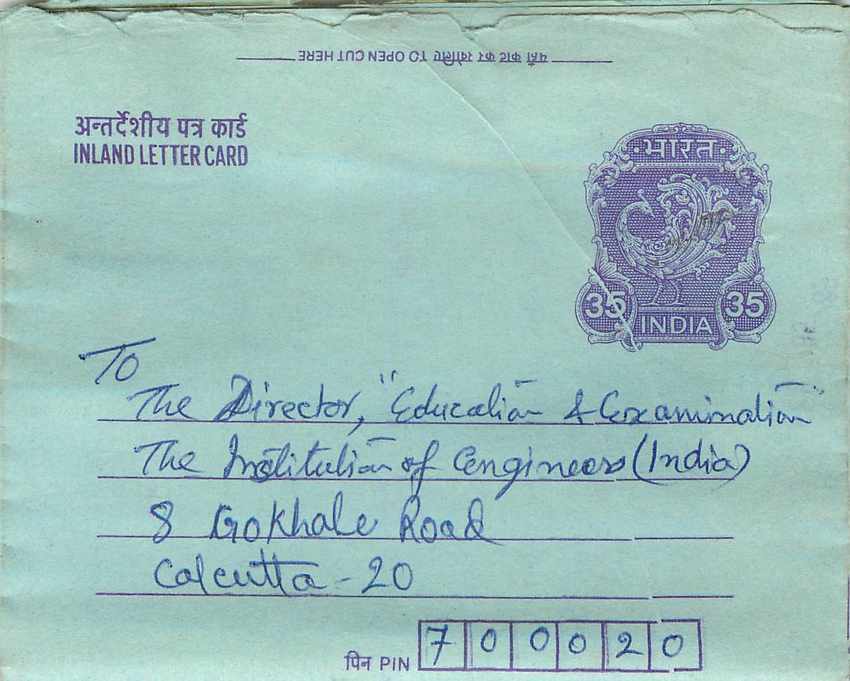 यहाँ काट कर खोलिए TO OPEN CUT HERE
अन्तर्देशीय पत्र कार्ड
INLAND LETTER CARD
भारत
35 35
INDIA
To
The Director, "Education & Examination"
The Institution of Engineers (India)
8 Gokhale Road
Calcutta - 20
पिन PIN 700020